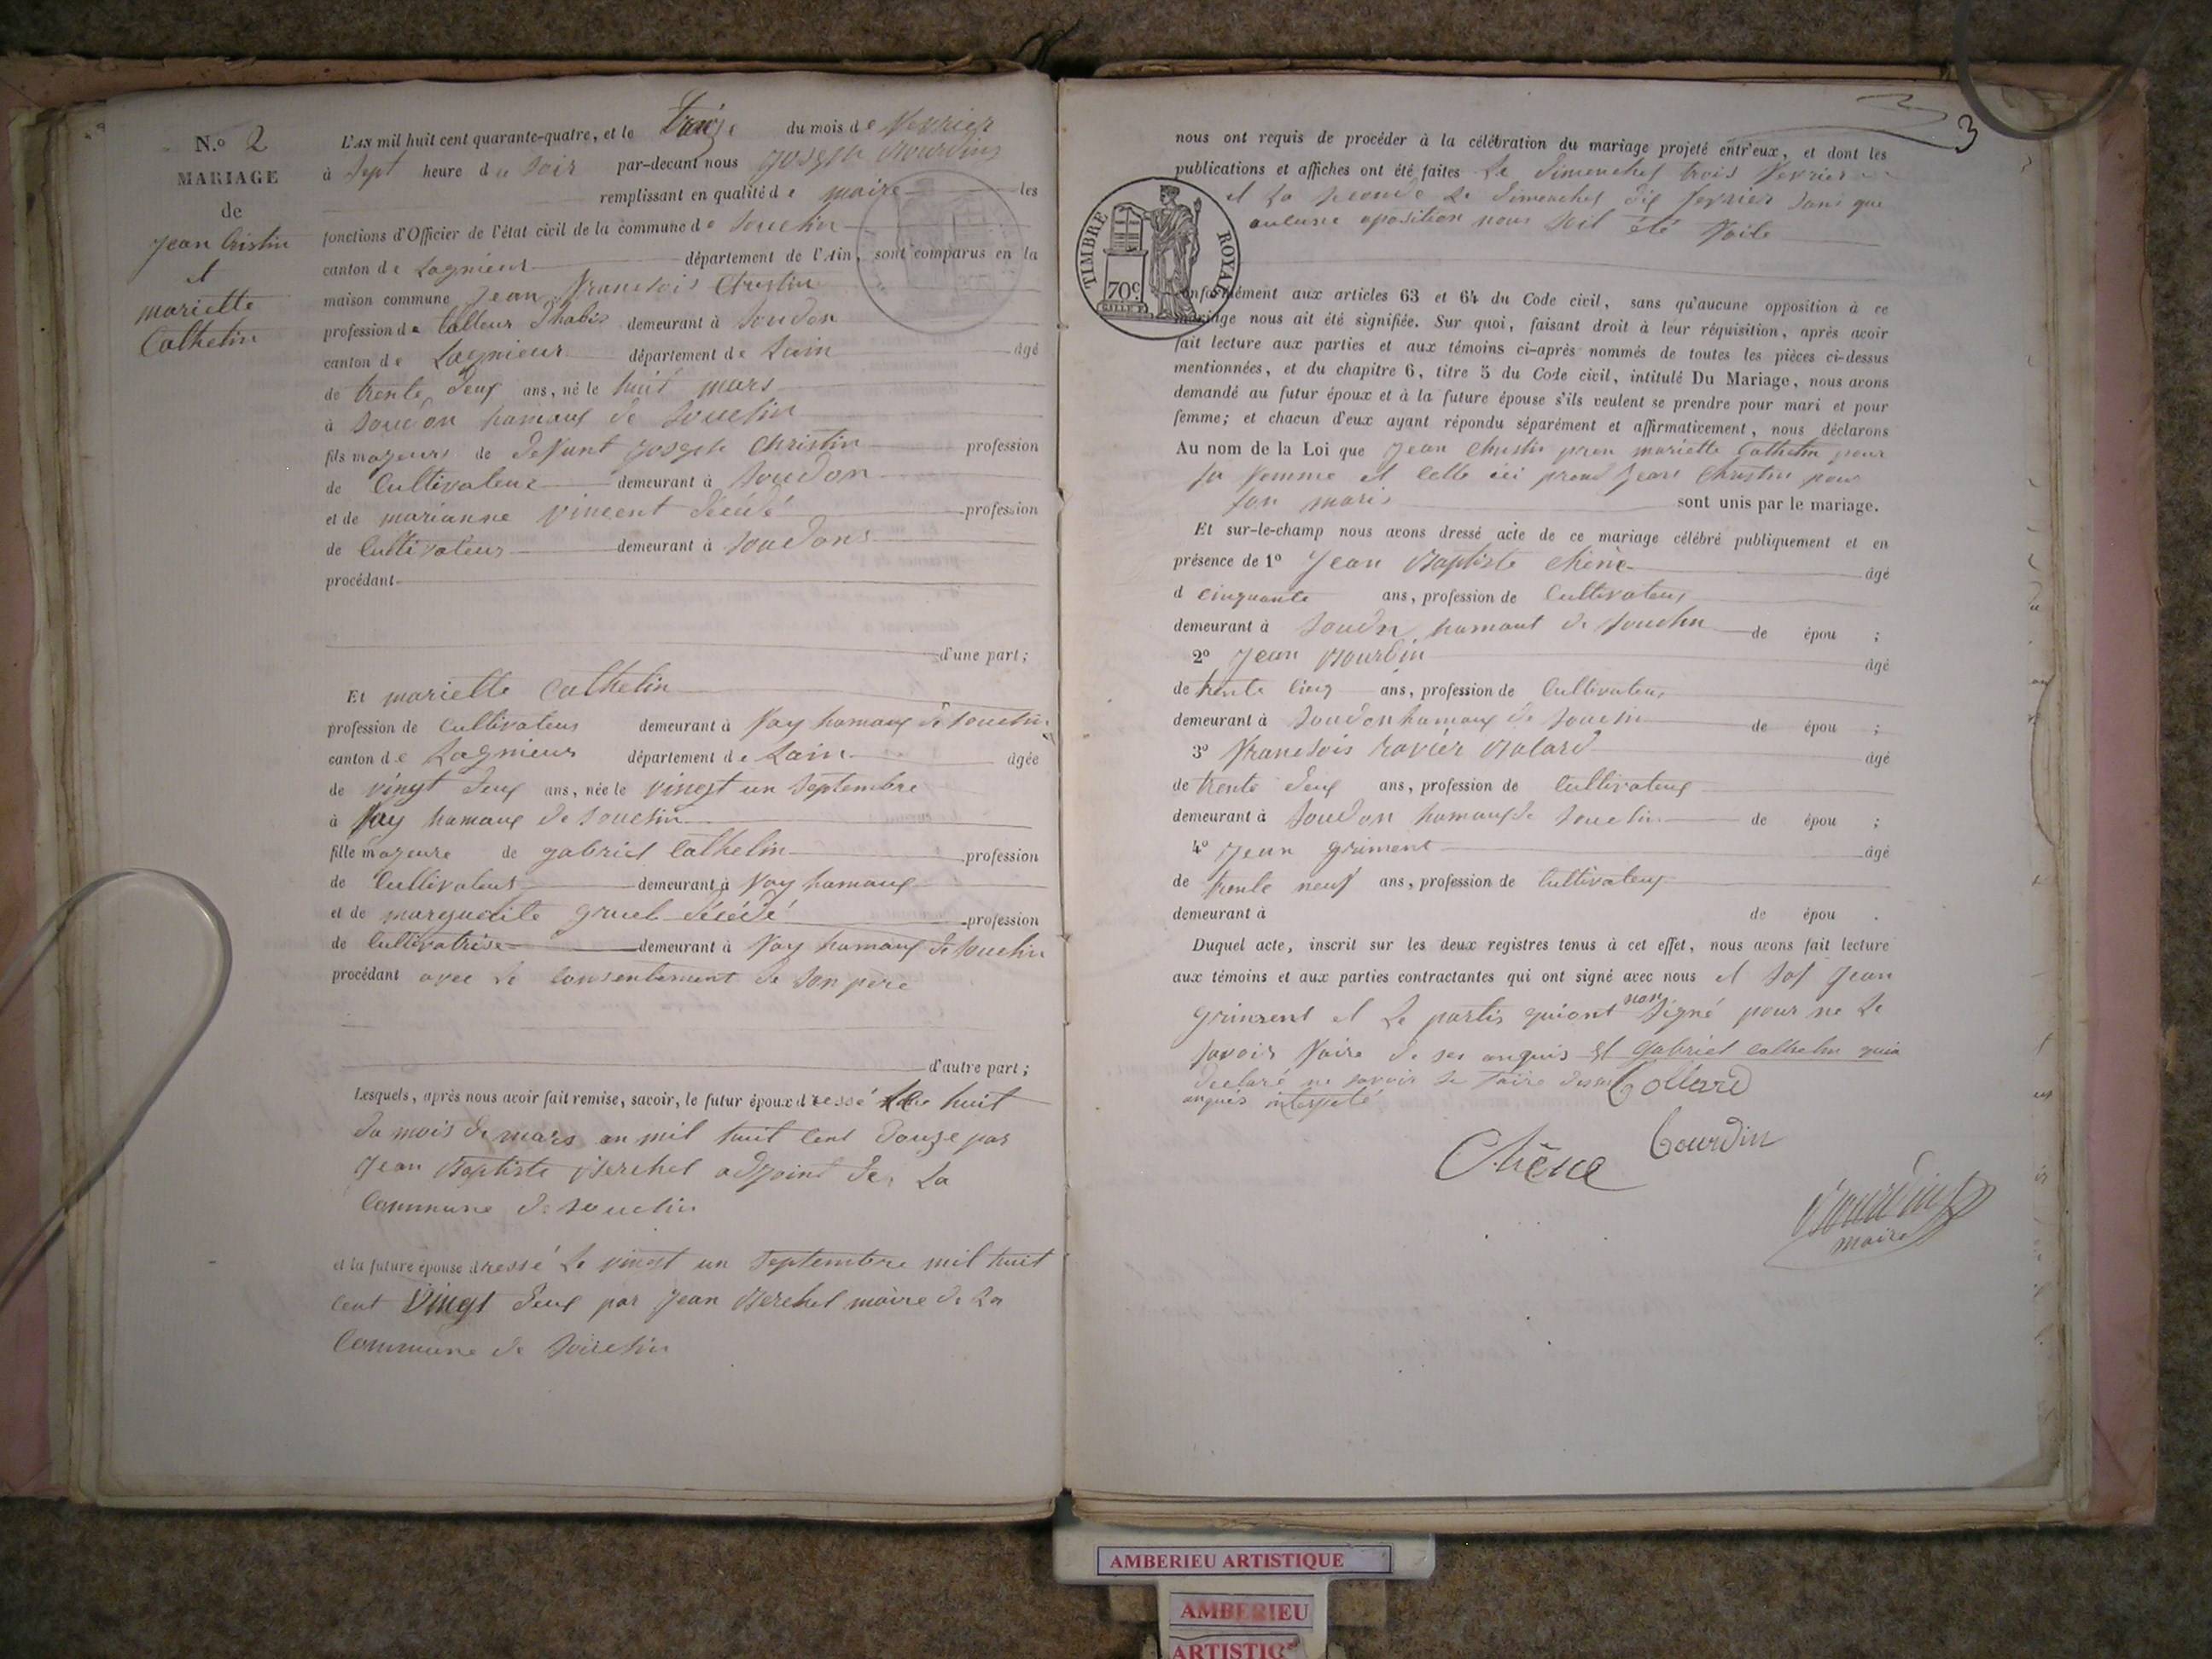 N.o 2
MARIAGE
de
jean Cristin
et
mariette
Cathelin
L'AN mil huit cent quarante-quatre, et le treize du mois de fevrier
à sept heure du soir par-devant nous joseph Bourdin
remplissant en qualité de maire les
fonctions d'Officier de l'état civil de la commune de Souclin
canton de Lagnieux département de l'Ain, sont comparus en la
maison commune jean francsois Christin
profession de talleur dhabis demeurant à Soudon
canton de Lagnieux département de Lain âgé
de trente deux ans, né le huit mars
à Soudon hamaux de Souclin
fils majeurs de defunt joseph Christin profession
de Cultivateur demeurant à Soudon
et de marianne vincent décédé profession
de Cultivateur demeurant à Soudons
procédant
d'une part;
Et mariette Cathelin
profession de Cultivateur demeurant à fay hamaux de Souclin
canton de Lagnieux département de Lain âgée
de vingt deux ans, née le vingt un Septembre
à fay hamaux de Souclin
fille majeure de gabriel Cathelin profession
de Cultivateur demeurant à fay hamaux
et de marguerite gruel décédé profession
de Cultivatrise demeurant à fay hamaux de Souclin
procédant avec le Consentement de Son père
d'autre part;
Lesquels, après nous avoir fait remise, savoir, le futur époux dressé huit
du mois de mars an mil huit Cent douze par
jean Baptiste Berchet adjoint de La
Commune de Souclin
et la future épouse dressé le vingt un Septembre mil huit
Cent vingt deux par jean Berchet maire de La
Commune de Souclin
3
nous ont requis de procéder à la célébration du mariage projeté entr'eux, et dont les
publications et affiches ont été faites Le dimenches trois fevrier
et La seconde Le dimenches dix fevrier sans que
aucune oposition nous soit été faite
TIMBRE ROYAL
70c
conformément aux articles 63 et 64 du Code civil, sans qu'aucune opposition à ce
mariage nous ait été signifiée. Sur quoi, faisant droit à leur réquisition, après avoir
fait lecture aux parties et aux témoins ci-après nommés de toutes les pièces ci-dessus
mentionnées, et du chapitre 6, titre 5 du Code civil, intitulé Du Mariage, nous avons
demandé au futur époux et à la future épouse s'ils veulent se prendre pour mari et pour
femme; et chacun d'eux ayant répondu séparément et affirmativement, nous déclarons
Au nom de la Loi que jean Christin pren mariette Cathelin pour
sa femme et Celle ici prend jean Christin pour
son maris sont unis par le mariage.
Et sur-le-champ nous avons dressé acte de ce mariage célébré publiquement et en
présence de 1o jean Baptiste Chêne âgé
d cinquante ans, profession de Cultivateur
demeurant à Soudn hamaut de Souclin de épou ;
2o jean Bourdin âgé
de trente cinq ans, profession de Cultivateur
demeurant à Soudon hamaux de Souclin de épou ;
3o francsois Xavier Bolard âgé
de trente deux ans, profession de Cultivateur
demeurant à Soudon hamaux de Souclin de épou ;
4o jean âgé
de trente neuf ans, profession de Cultivateur
demeurant à de épou .
Duquel acte, inscrit sur les deux registres tenus à cet effet, nous avons fait lecture
aux témoins et aux parties contractantes qui ont signé avec nous et jean
et Le partis quiont non Signé pour ne Le
Savoir faire de ses anquis Et gabriel Cathelin quia
declaré ne savoir Le faire
anquis
Bollard
Bourdin
Chêne
Bourdin
maire
AMBERIEU ARTISTIQUE
AMBERIEU
ARTISTIQ